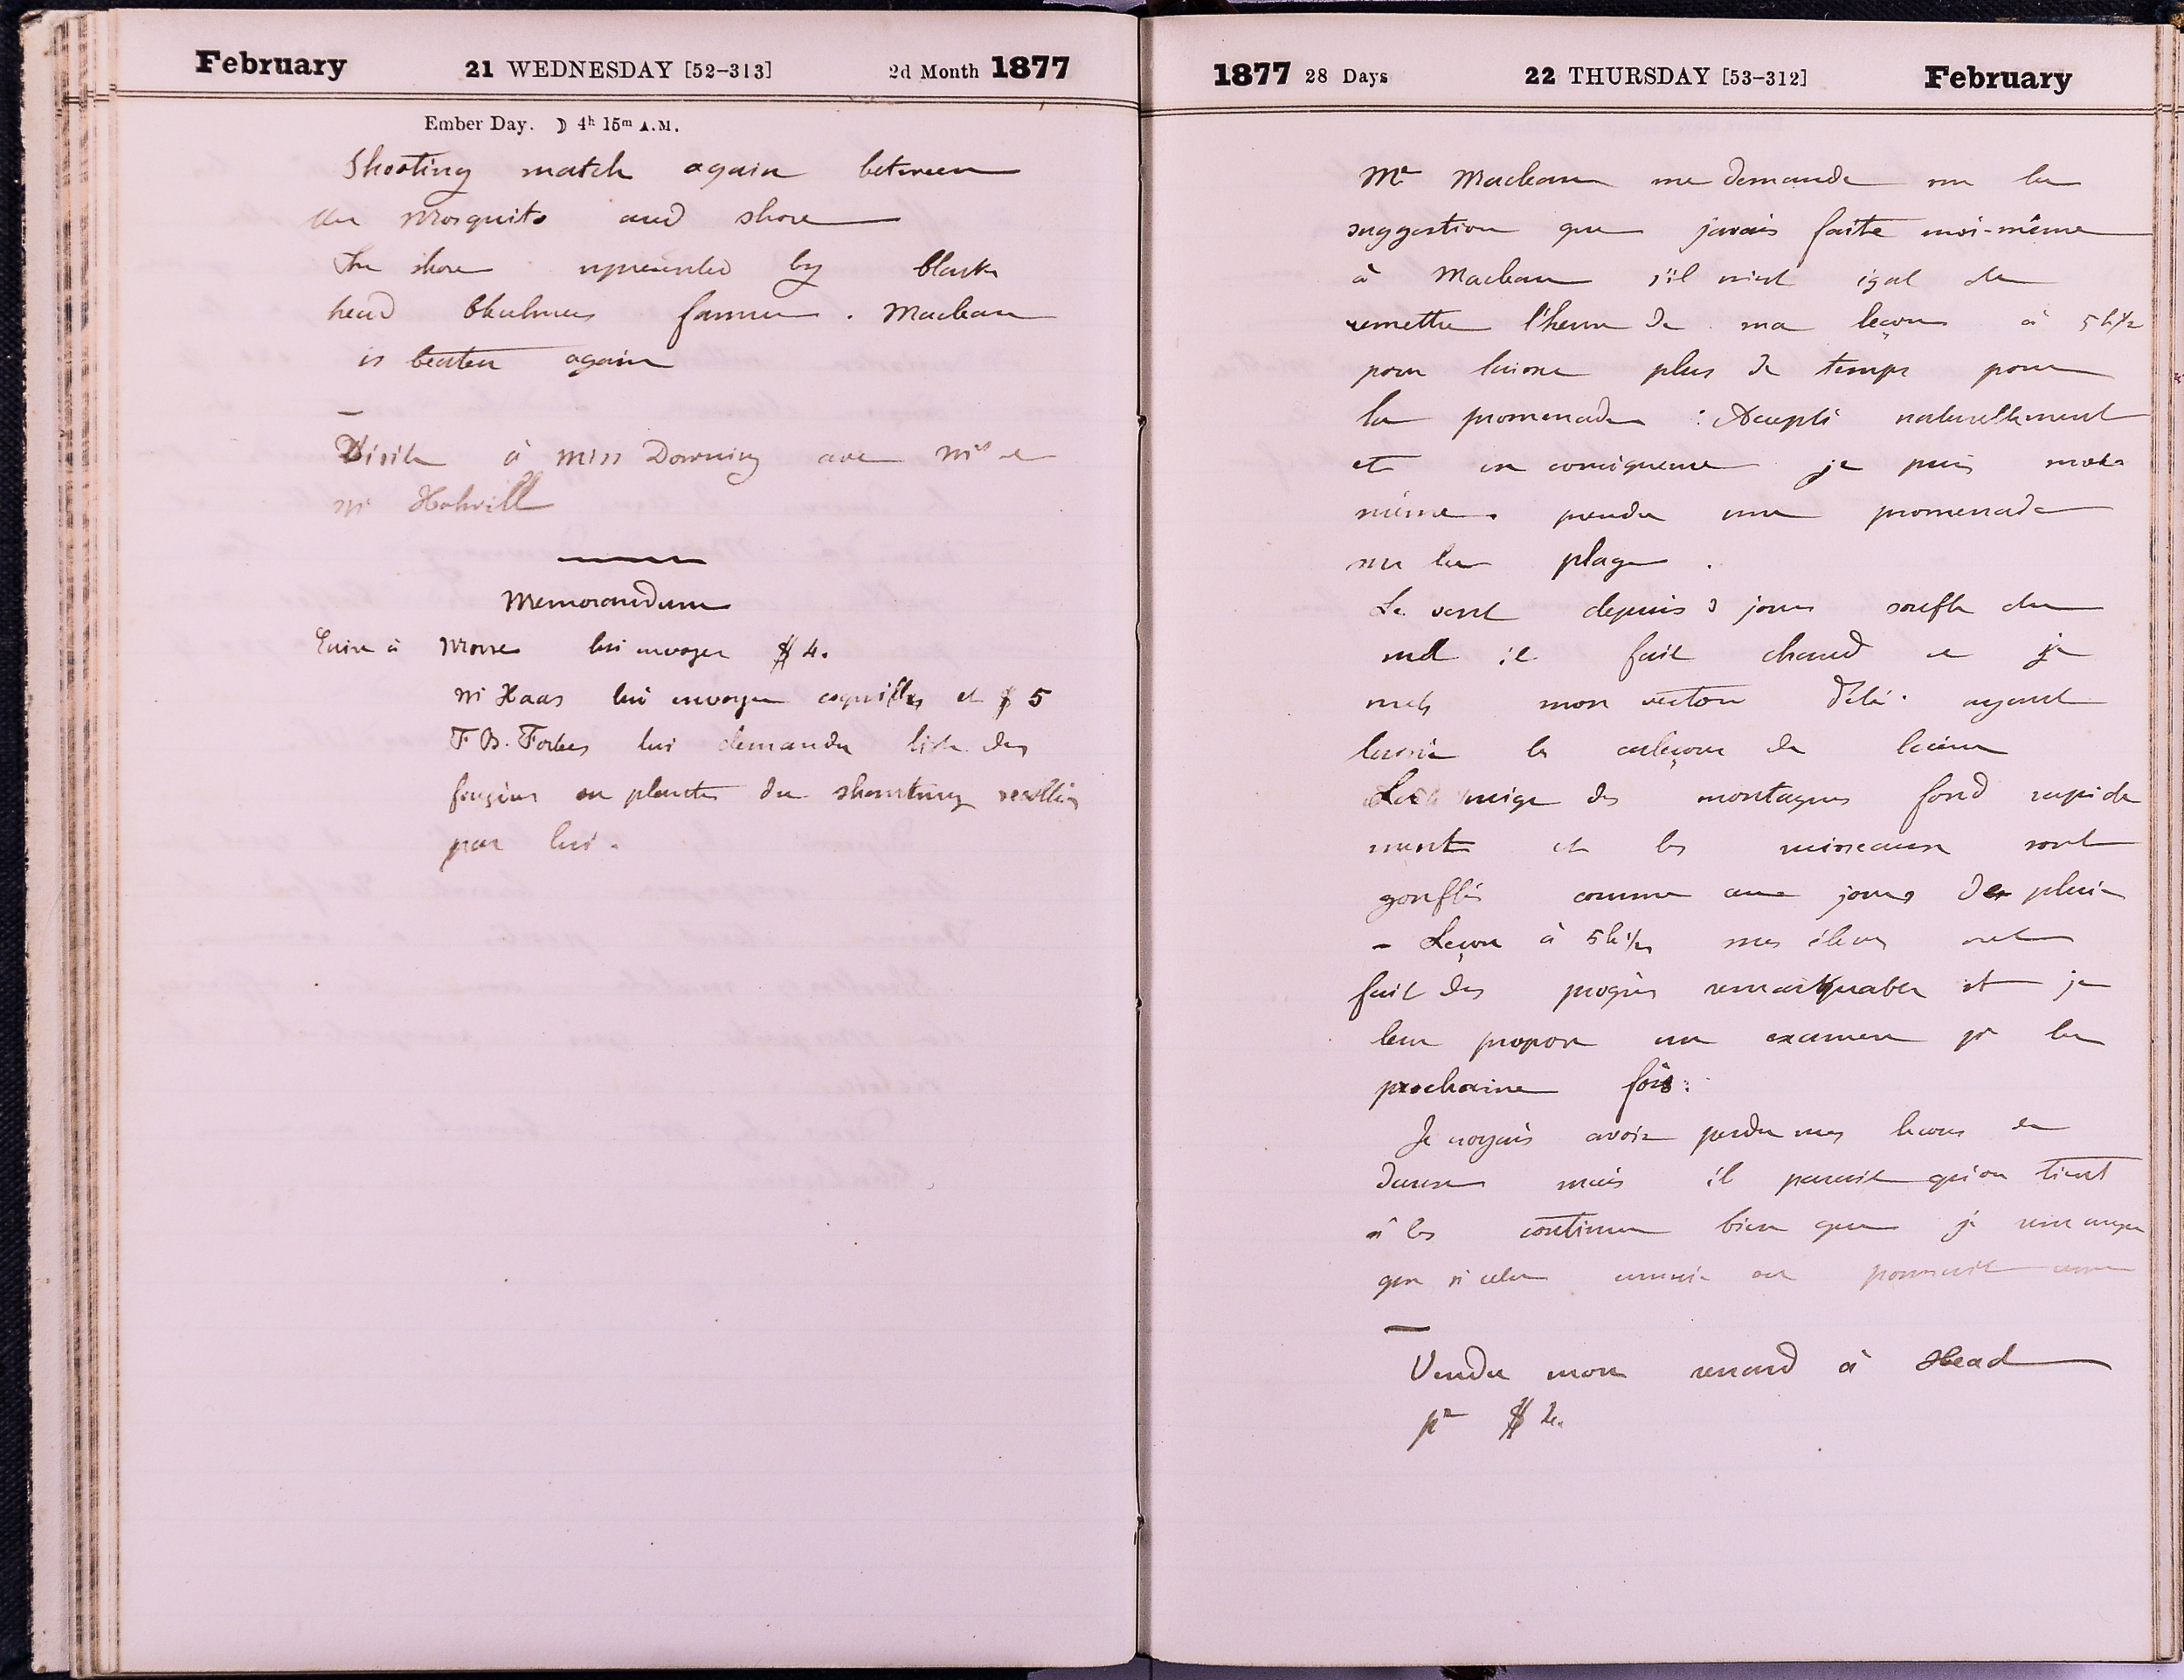 February 21 WEDNESDAY [52-313] 2d Month 1877
Ember Day. ☽ 4h 15m A.M.
Shooting match again between
the Mosquito and shore
The shore represented by Clark
head Chalmers farmer. Maclean
is beaten again
—
Visite à Miss Downing avec Me et
Mr
Memorandum
Ecrire à Morse lui envoyer $ 4.
Mr Haas lui envoyer coquilles et $ 5
F B. Forbes lui demander liste des
fougères ou plantes du Shantung recoltées
par lui.
1877 28 Days 22 THURSDAY [53-312] February
Mr Maclean me demande sur la
suggestion que javais faite moi-même
à Maclean s'il m'est égal de
remettre l'heure de ma leçon à 5h½
pour laisser plus de temps pour
la promenade : Accepté naturellement
et en consequence je puis moi
même. prendre une promenade
sur la plage .
Le vent depuis 3 jours soufle du
sud il fait chaud et je
mets mon veston d'été. ayant
laissé les caleçons de laine
La neige des montagnes fond rapide
ment et les ruisseaux sont
gonflés comme aux jours de pluie
- Leçon à 5h½ mes élèves ont
fait des progrès remarquables et je
leur propose un examen pr la
prochaine fois.
Je croyais avoir perdu mes lecons de
danse mais il parait qu'on tient
à les continuer bien que je remarque
que si cela ennuie on pourrait
—
Vendu mon renard à Head
pr $ 2.